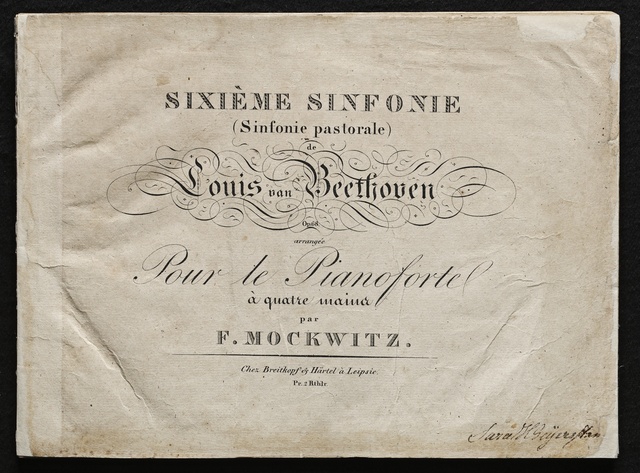 SIXIÈME SINFONIE
(Sinfonie pastorale)
de
Louis van Beethoven
Op. 68.
arrangée
Pour le Pianoforte
à quatre mains
par
F. MOCKWITZ.
Chez Breitkopf & Härtel à Leipsic.
Pr. 2 Rthlr.
Sara